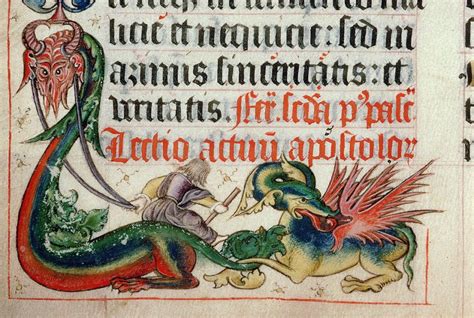 in fermento ma
licie et nequicie: sed in
azimis sinceritatis: et
uritatis. Fer. scda p⁹ pasc
Lectio actuū apostolor